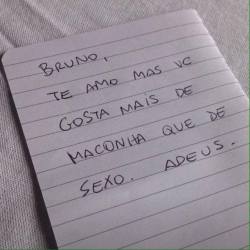 BRUNO,
TE AMO MAS VC
GOSTA MAIS DE
MACONHA QUE DE
SEXO. ADEUS.